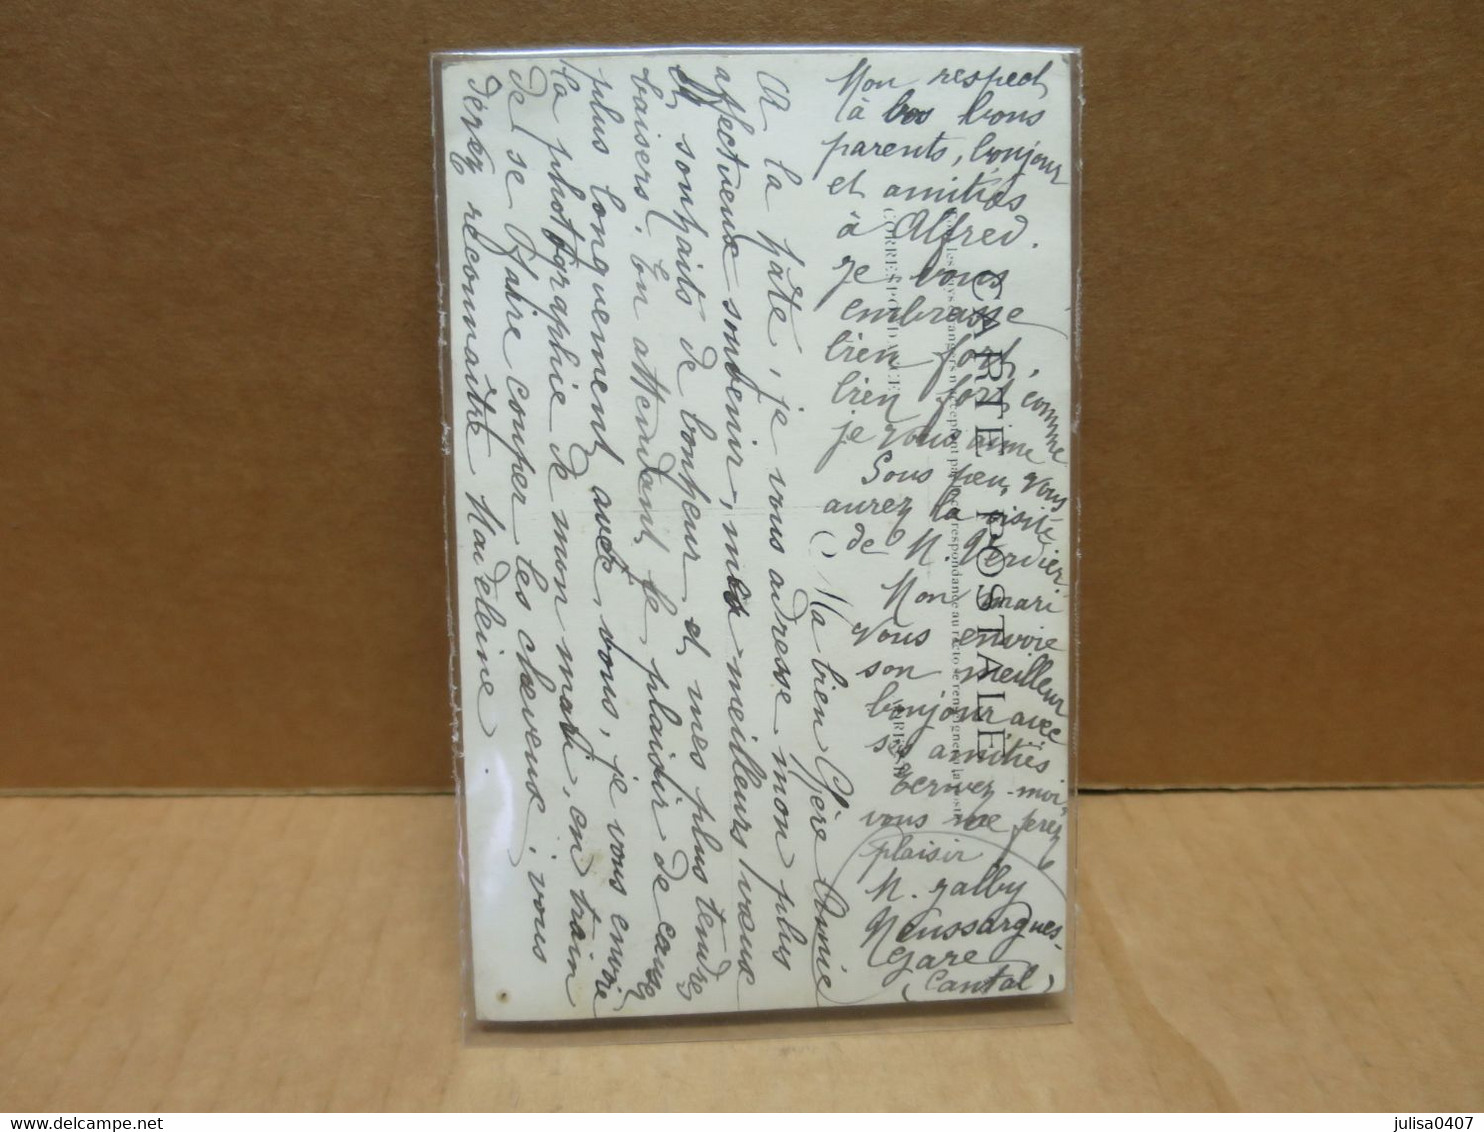 Ma bien Chère Amie
A la hâte, je vous adresse mon plus
affectueux souvenir, mes meilleurs vœux
et souhaits de bonheur et mes plus tendres
baisers. En attendant le plaisir de causer
plus longuement avec vous, je vous envoie
la photographie de mon mari, en train
de se faire couper les cheveux, vous
derez reconnaître Madeleine.
Mon respect
à vos bons
parents, bonjour
et amitiés
à Alfred.
Je vous
embrasse
bien fort,
bien fort comme
je vous aime
Sous peu, vous
aurez la visite
de M. Verdier
Mon mari
vous envoie
son meilleur
bonjour avec
ses amitiés
Ecrivez-moi,
vous me ferez
plaisir
M. Zalby
Neussargues-
Gare
(Cantal)
CARTE POSTALE
CORRESPONDANCE
julisa0407